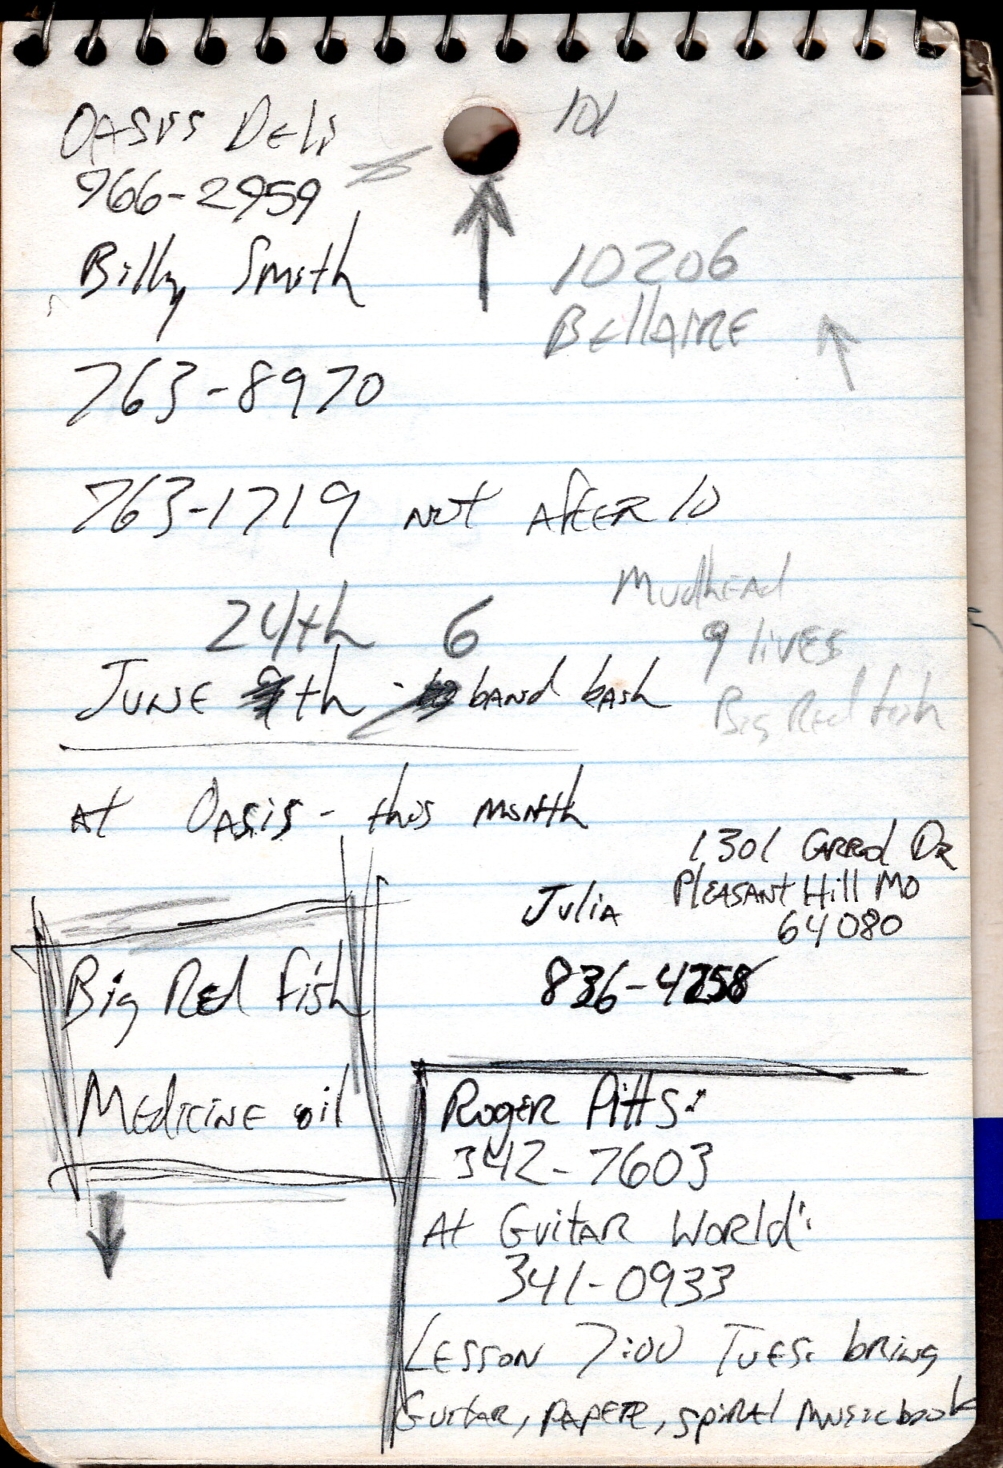 Oasis Deli
101
966-2959
Billy Smith
10206
Bellaire
763-8970
763-1719 not after 10
Mudhead
24th 6
9 lives
June th - band bash
Big Red fish
At Oasis - this month
1301 Dr
Julia Pleasant Hill Mo
64080
Big Red Fish
836-4258
Medicine oil
Roger Pitts:
342-7603
At Guitar World:
341-0933
Lesson 7:00 Tues: bring
Guitar, , spiral music book